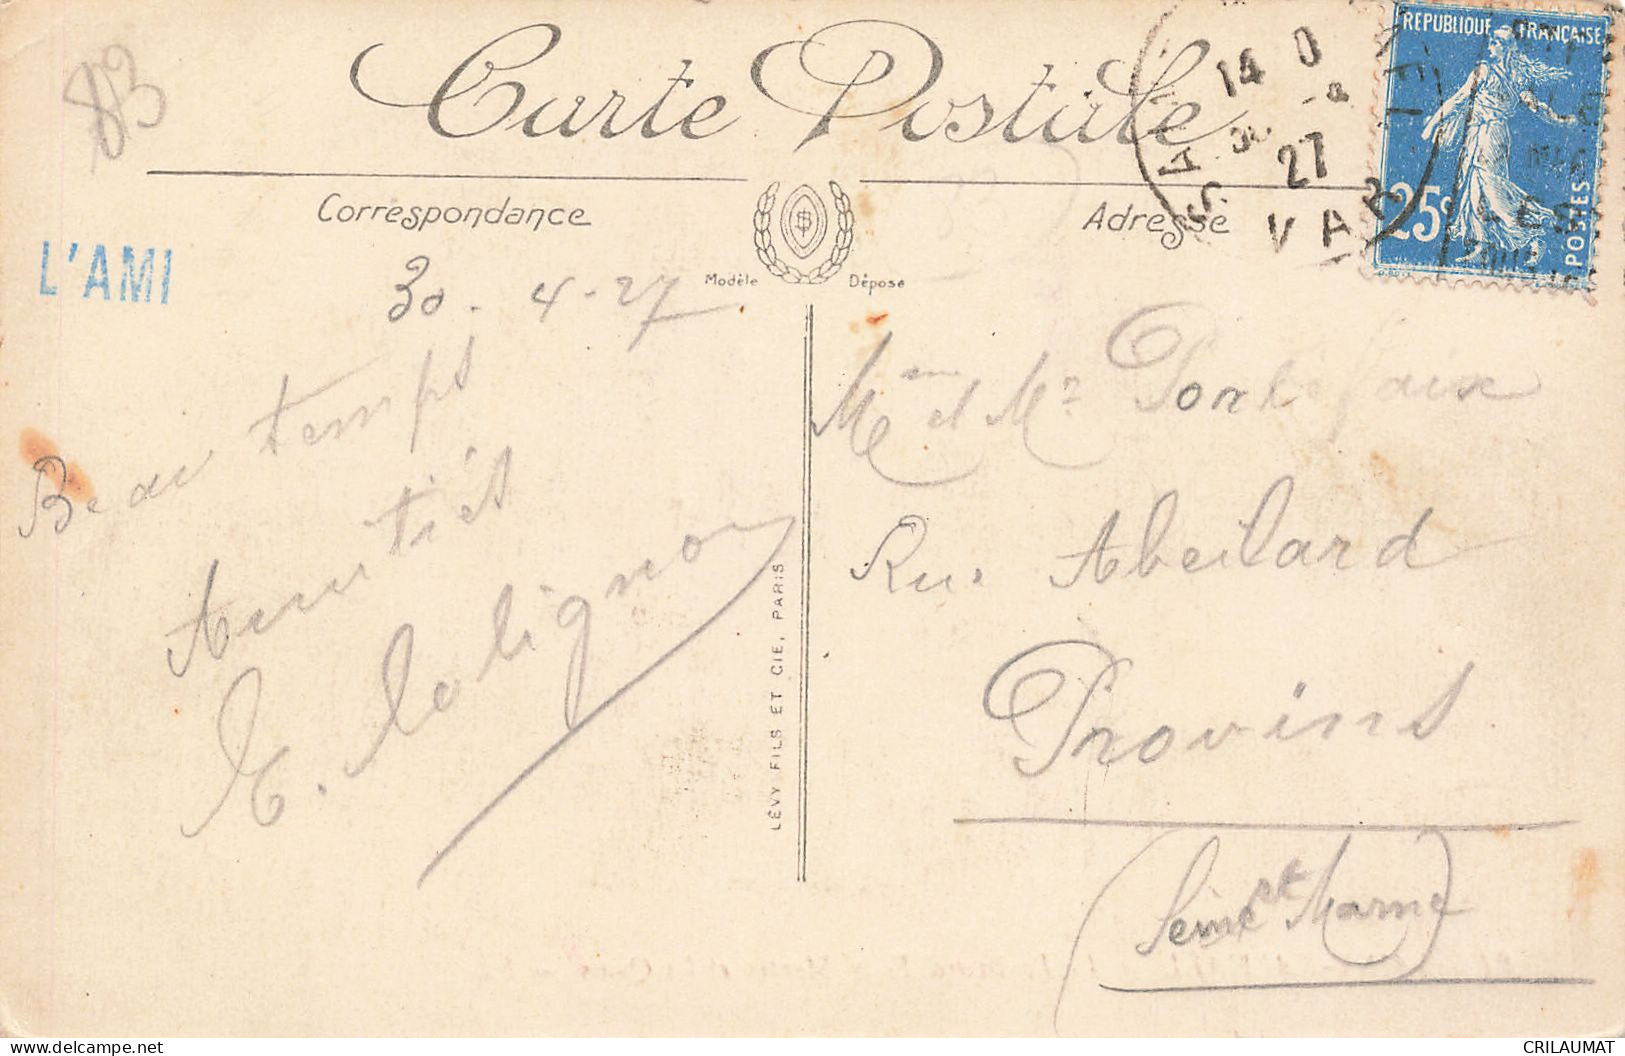 83
Carte Postale
Correspondance
Adresse
L'AMI
Modèle Déposé
14
27
VAR
REPUBLIQUE FRANÇAISE
25c
POSTES
30-4-27
Beau temps
Amitiés
Mme et Mr Pontefaix
Rue Abeilard
Provins
(Seine et Marne)
LÉVY FILS ET CIE, PARIS
CRILAUMAT